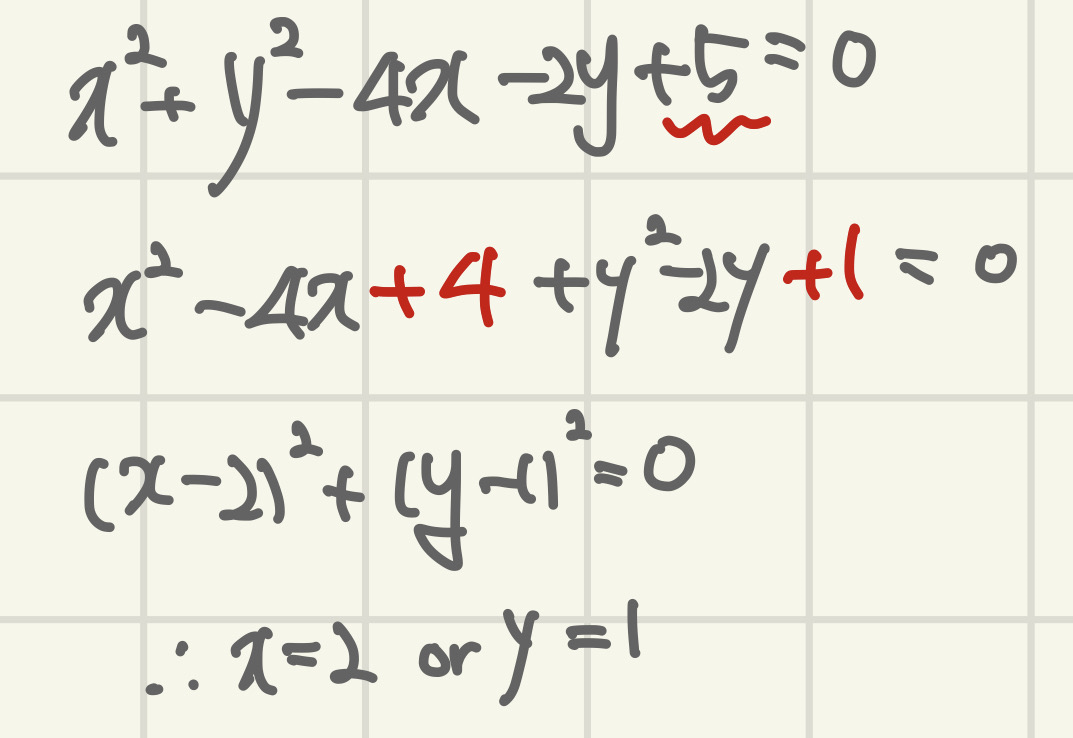 x²+y²-4x-2y+5=0
x²-4x+4+y²-2y+1=0
(x-2)²+(y-1)²=0
∴x=2 or y=1